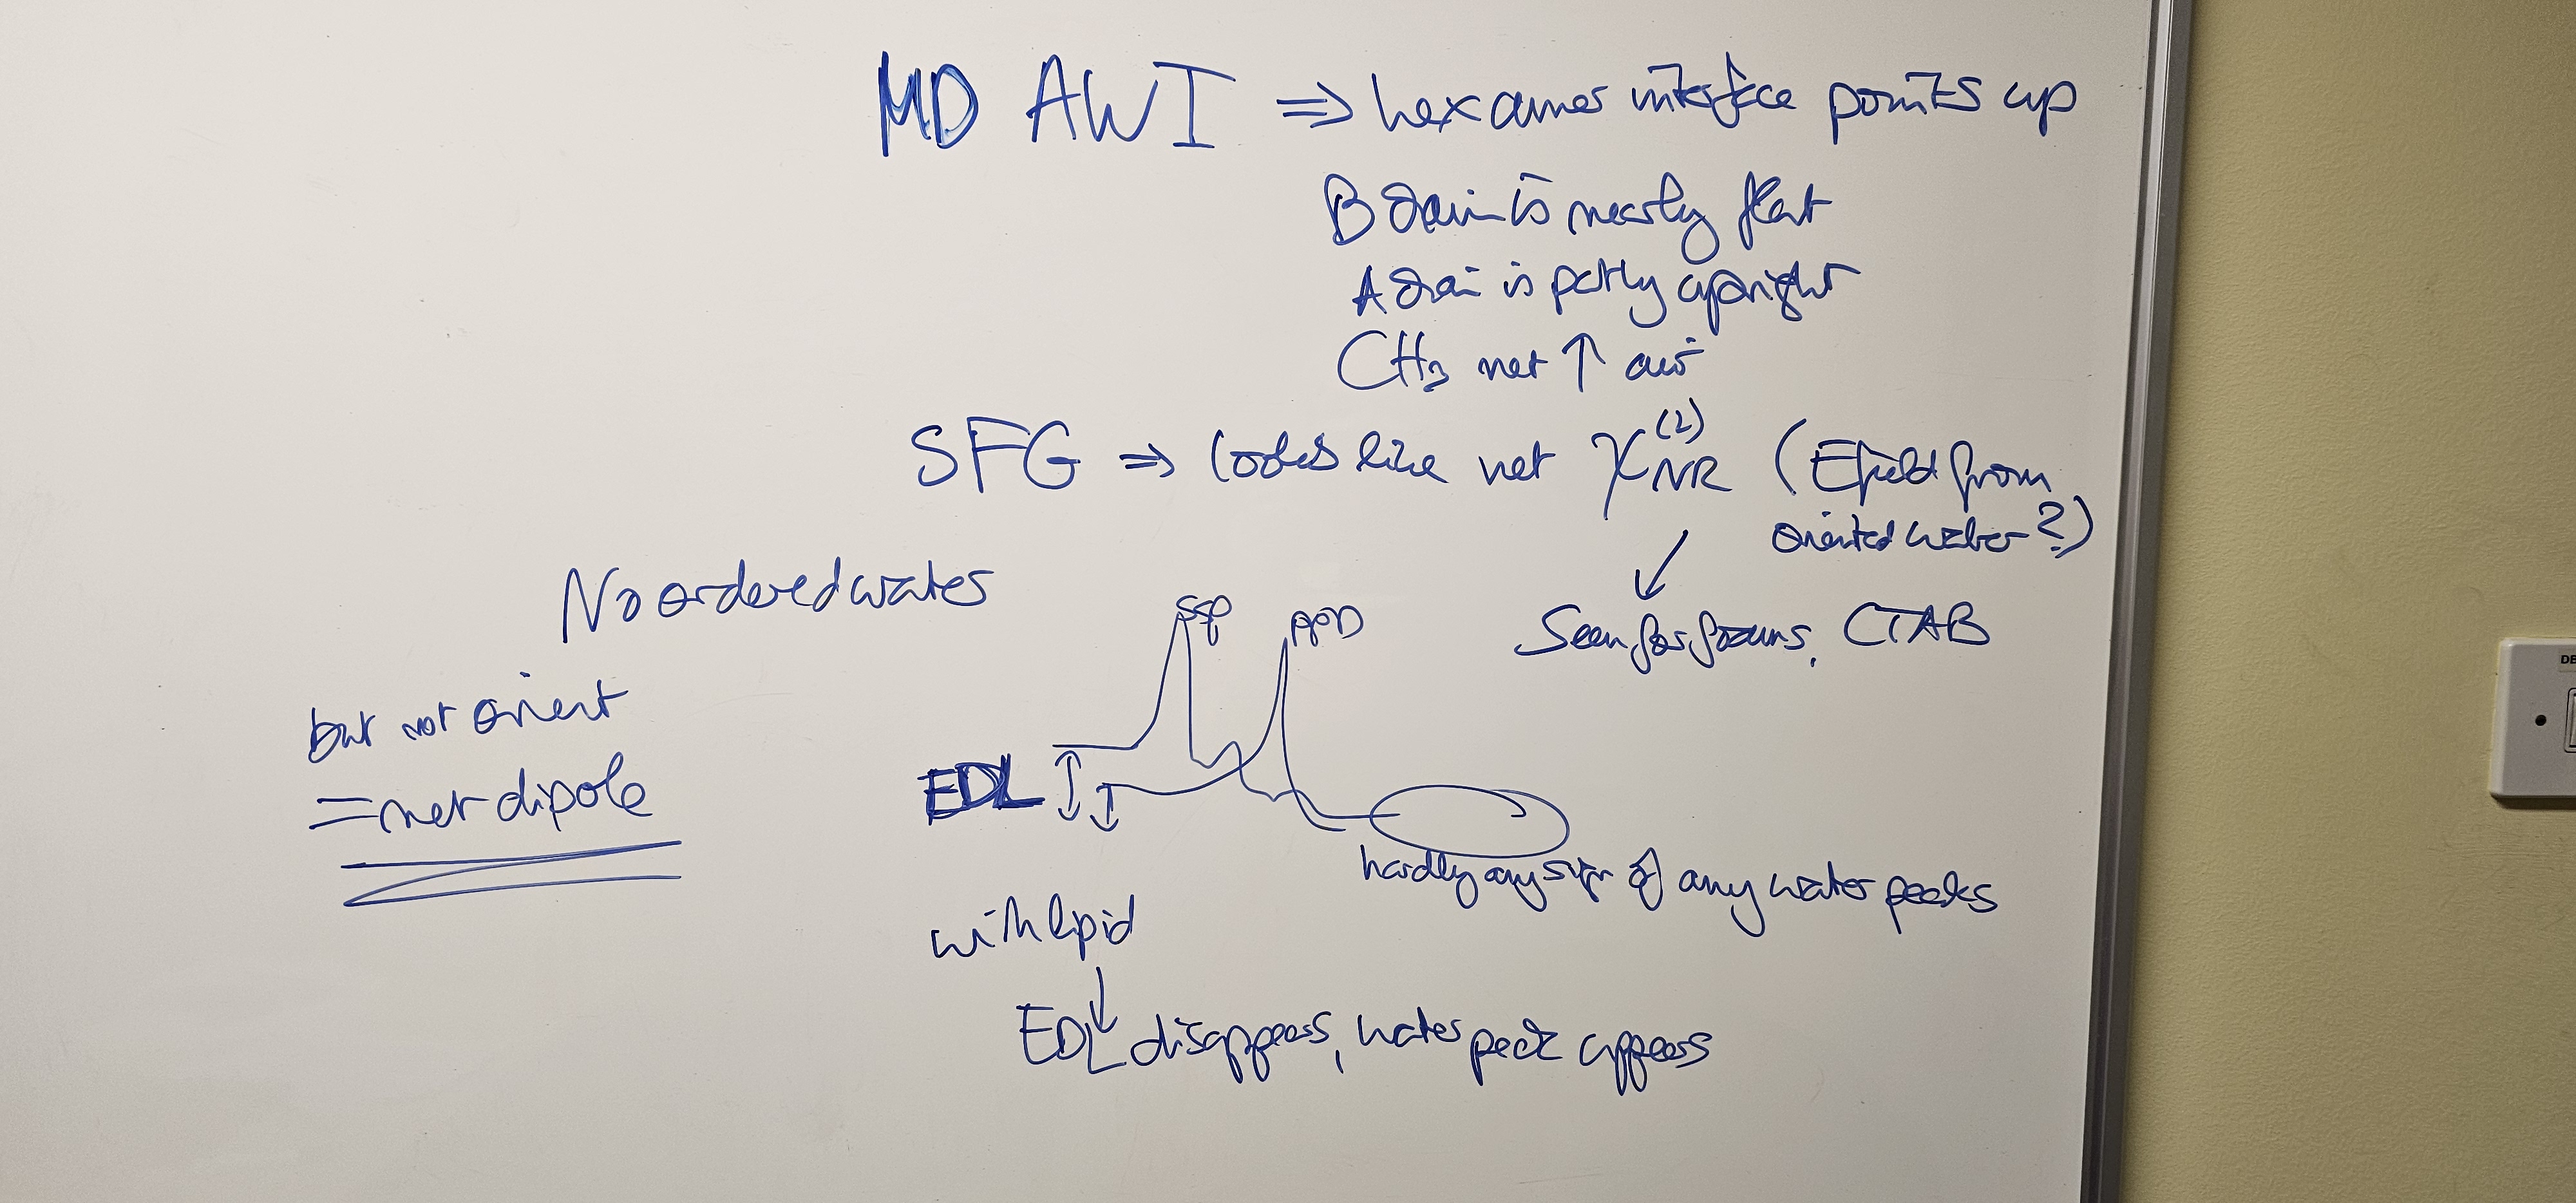 MD AWI ⇒ hexamer interface points up
B chain is nearly flat
A chain is partly upright
CH3 net ↑ air
SFG ⇒ looks like net χ(2)NR (Efield from
oriented water?)
No ordered water
ssp ppp
Seen for foams, CTAB
but not orient
= net dipole
EDL
hardly any sign of any water peaks
with lipid
EDL disappears, water peak appears
DE